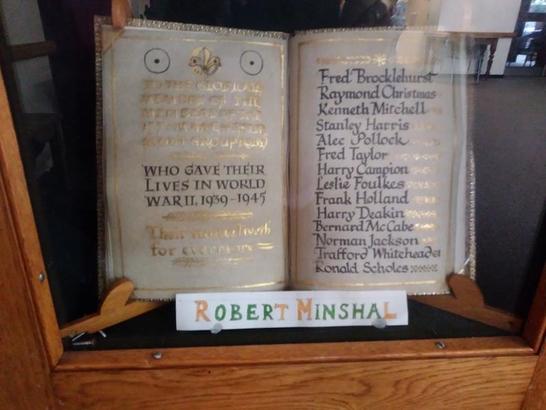 TO THE GLORIOUS
MEMORY OF THE
WHO GAVE THEIR
LIVES IN WORLD
WAR II, 1939-1945
Their name liveth
for evermore
Fred Brocklehurst
Raymond Christmas
Kenneth Mitchell
Stanley Harris
Alec Pollock
Fred Taylor
Harry Campion
Leslie Foulkes
Frank Holland
Harry Deakin
Bernard McCabe
Norman Jackson
Trafford Whitehead
Ronald Scholes
ROBERT MINSHAL